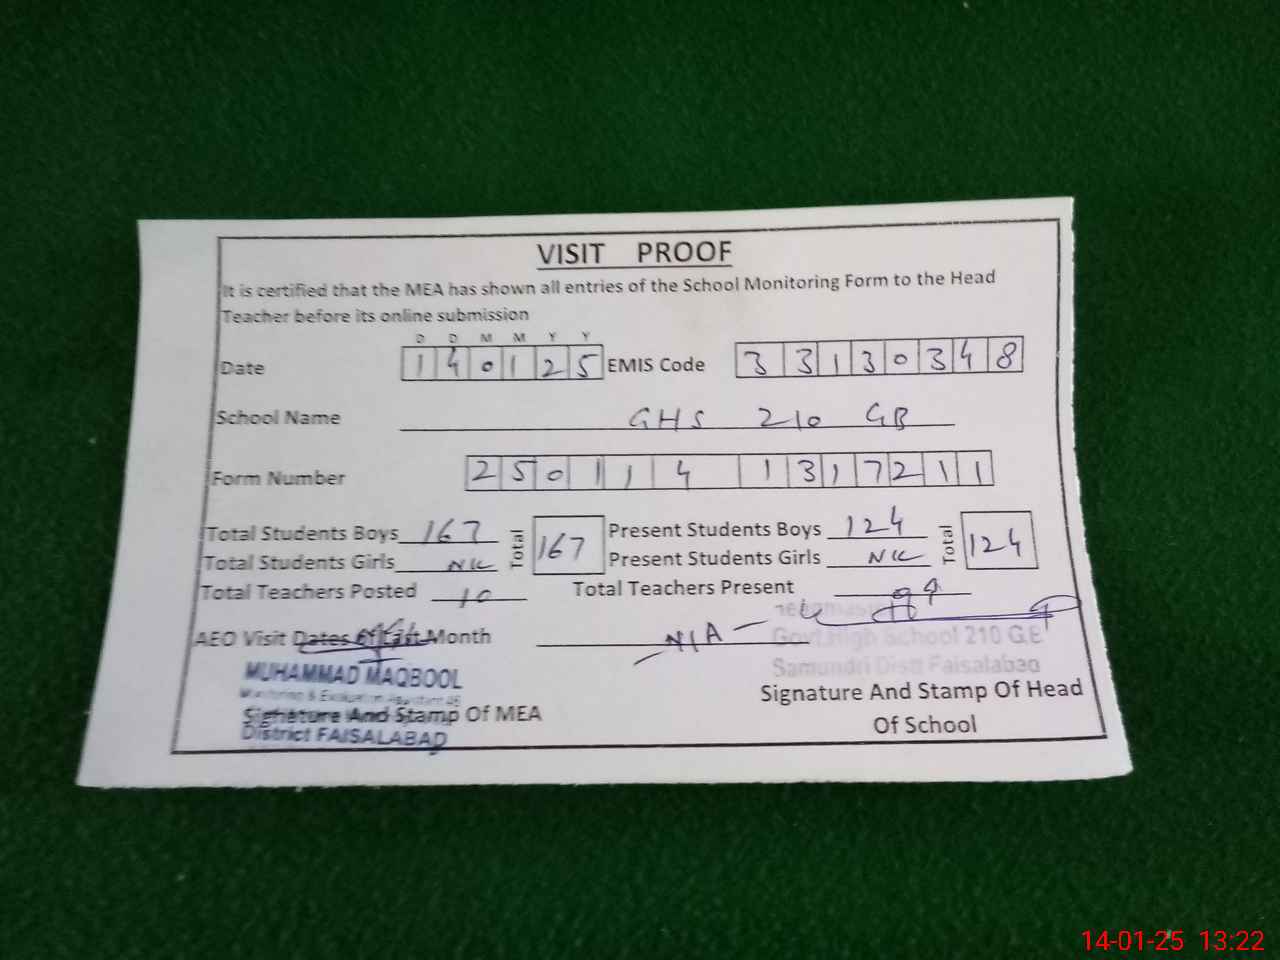 VISIT PROOF
It is certified that the MEA has shown all entries of the School Monitoring Form to the Head
Teacher before its online submission
D D M M Y Y
Date 1 4 0 1 2 5 EMIS Code 3 3 1 3 0 3 4 8
School Name GHS 210 GB
Form Number 2 5 0 1 1 4 1 3 1 7 2 1 1
Total Students Boys 167 Total 167 Present Students Boys 124 Total 124
Total Students Girls NIL Present Students Girls NIL
Total Teachers Posted 10 Total Teachers Present
AEO Visit Dates of Last Month N/A
Govt. High School 210 G.B
Samundri Distt Faisalabad
MUHAMMAD MAQBOOL
Signature And Stamp Of MEA
District FAISALABAD
Signature And Stamp Of Head
Of School
14-01-25 13:22